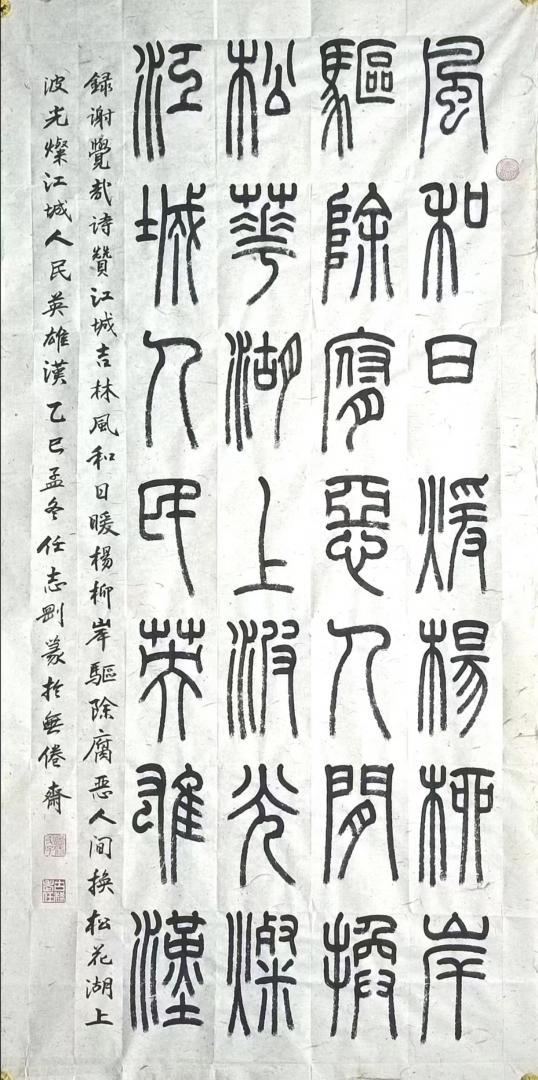 風和日煖楊柳岸
驅除腐惡人間換
松華湖上波光燦
江城人民英雄漢
録谢覺哉诗贊江城吉林風和日暖楊柳岸驅除腐惡人间换松花湖上
波光燦江城人民英雄漢乙巳孟冬任志剛篆於無倦齋